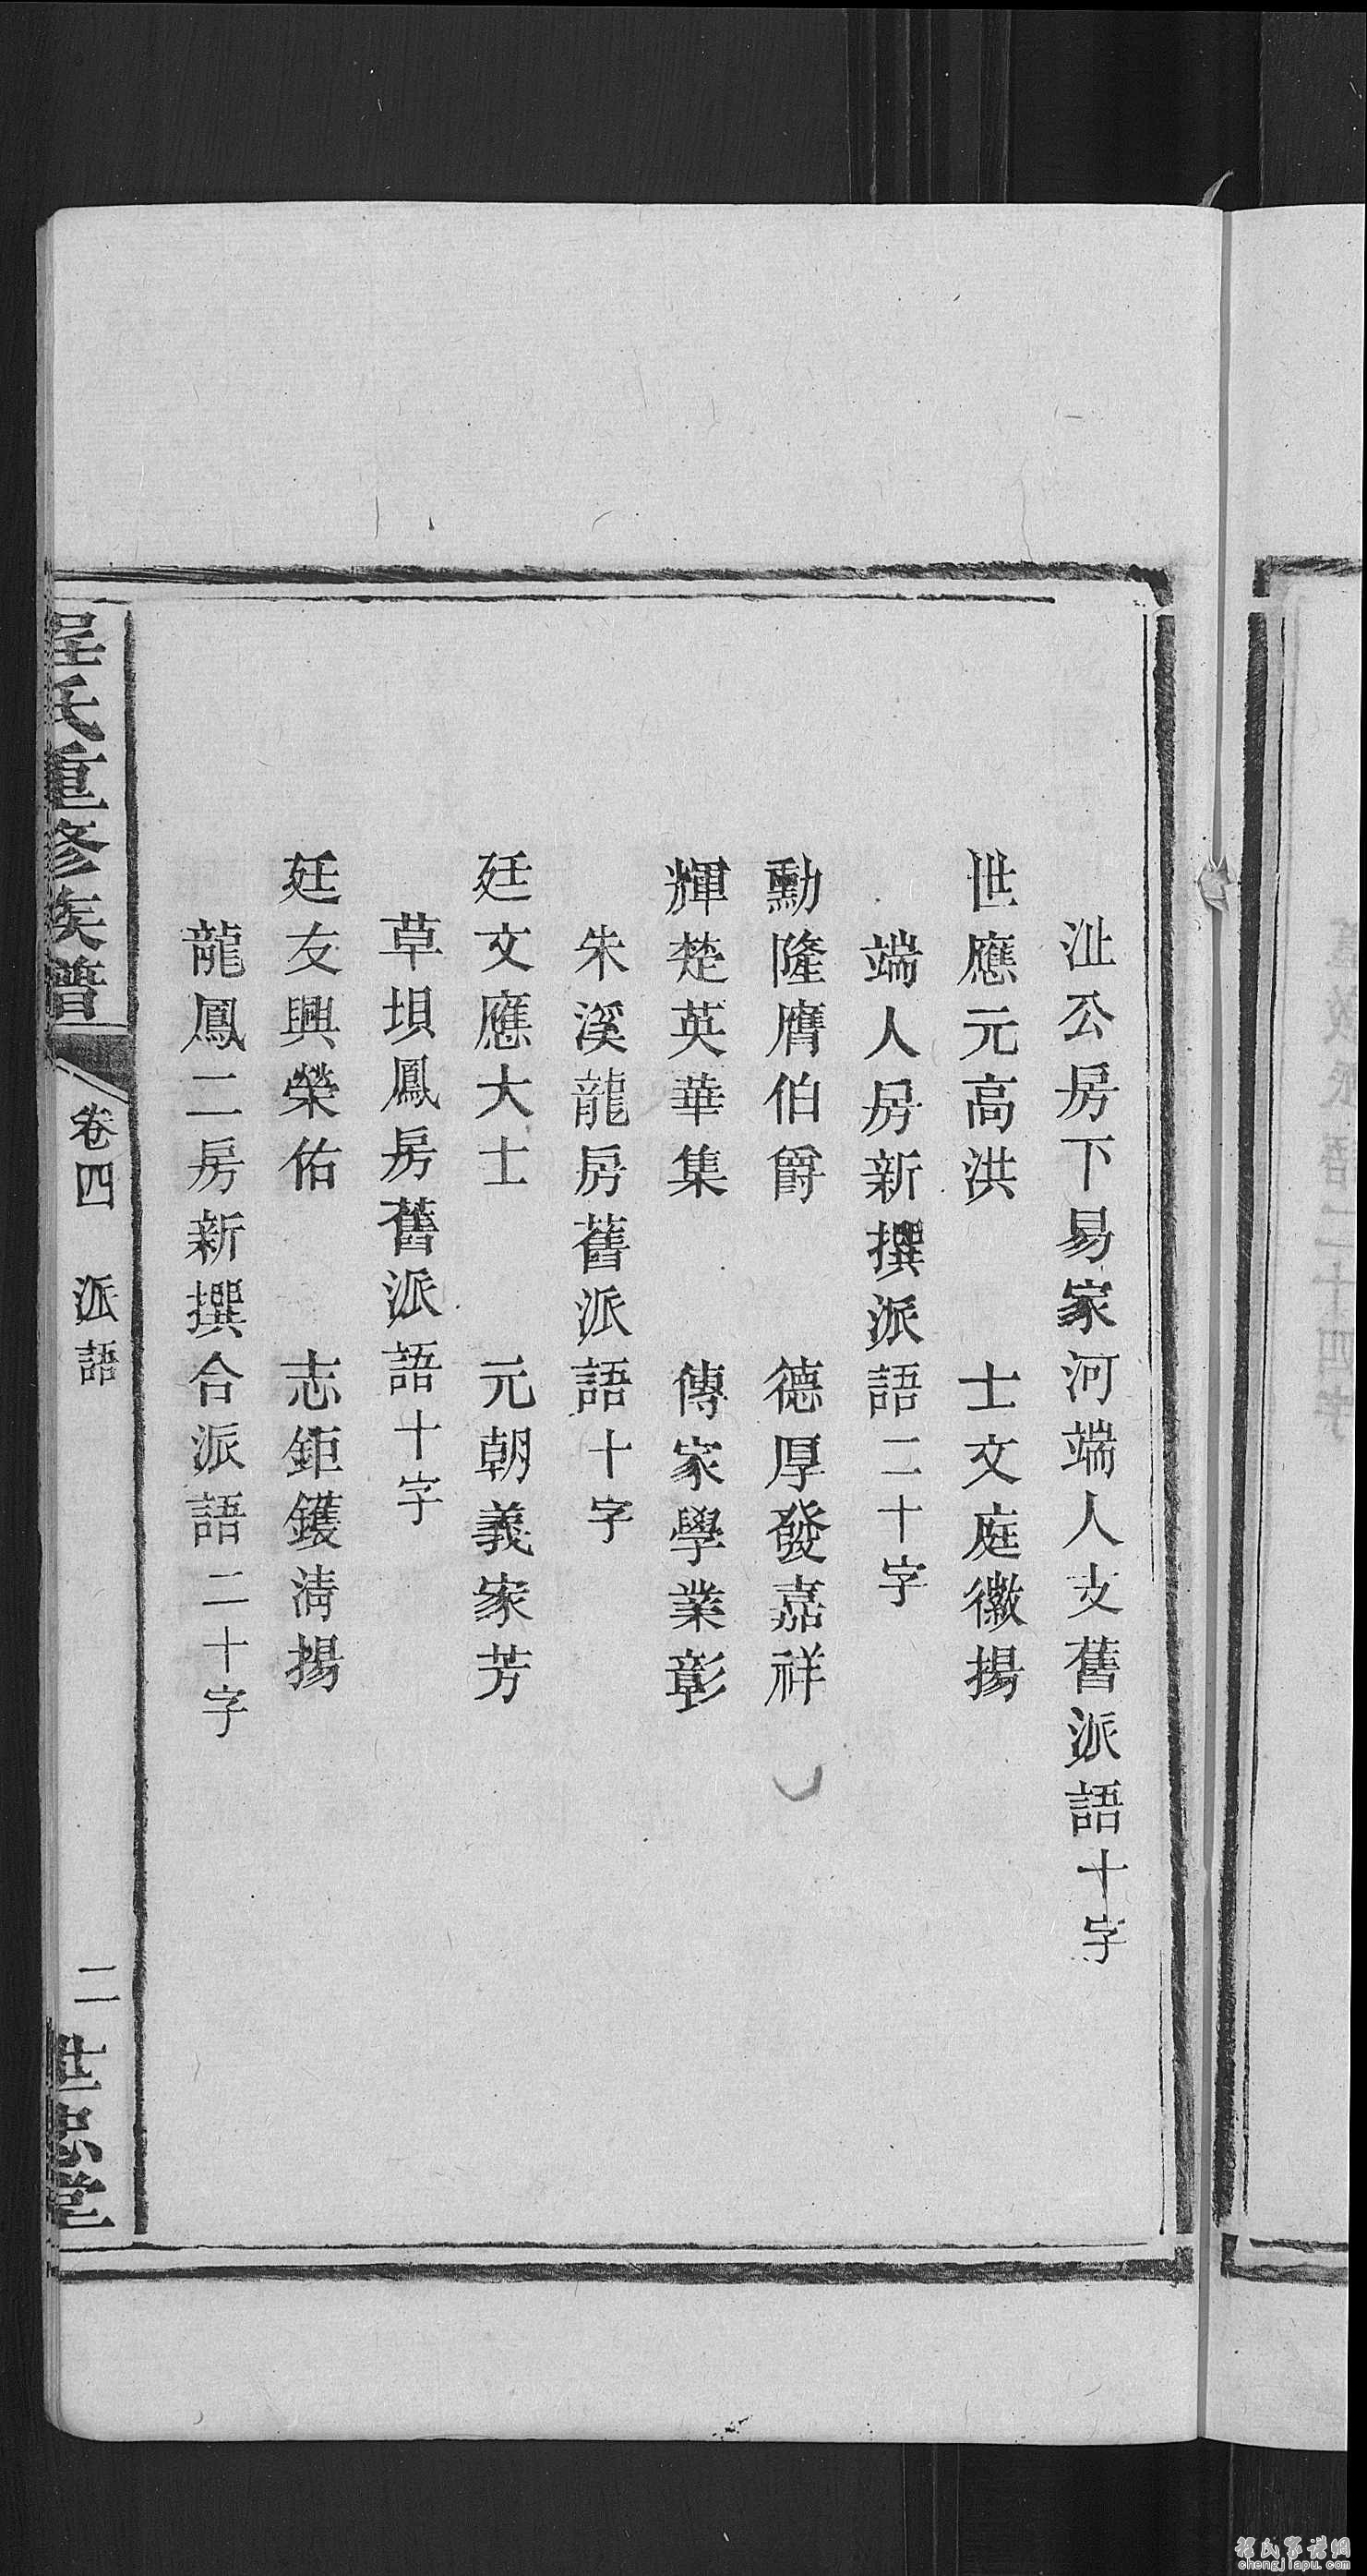 沚公房下易家河端人支舊派語十字
世應元高洪　士文庭徽揚
端人房新撰派語二十字
勳隆膺伯爵　德厚發嘉祥
輝楚英華集　傳家學業彰
朱溪龍房舊派語十字
廷文應大士　元朝義家芳
草埧鳳房舊派語十字
廷友興榮佑　志鉅鑊清揚
龍鳳二房新撰合派語二十字
程氏重修族譜　卷四　派語　二　世忠堂
程氏家譜網
chengjiapu.com